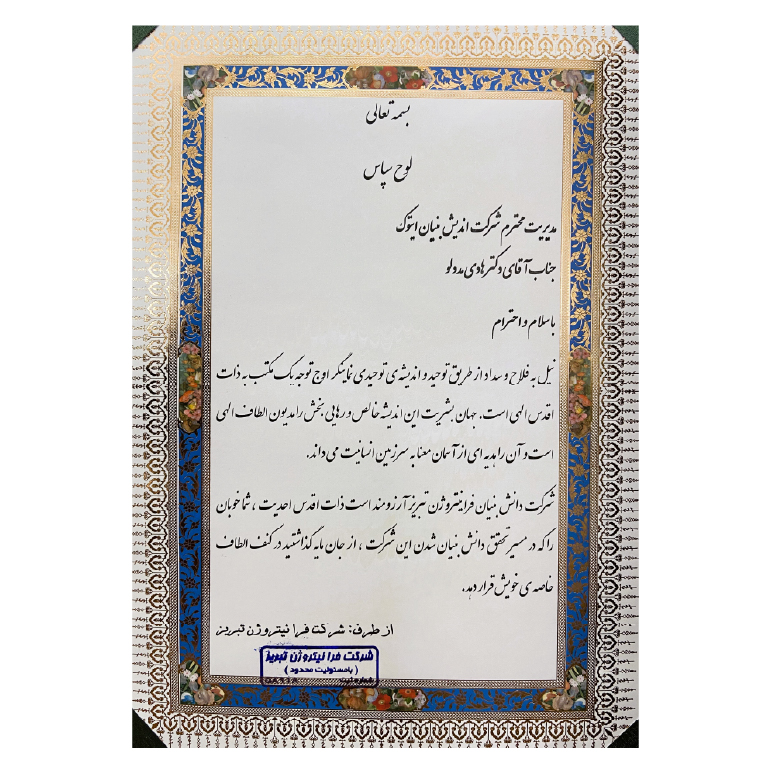 بسمه تعالی
لوح سپاس
مدیریت محترم شرکت اندیش بنیان ایتوک
جناب آقای دکتر هادی مددلو
باسلام و احترام
نیل به فلاح و سداد از طریق توحید و اندیشه ی توحیدی نمایانگر اوج توجه یک مکتب به ذات
اقدس الهی است. جهان بشریت این اندیشه خالص و رهایی بخش را مدیون الطاف الهی
است و آن را هدیه ای از آسمان معنا به سرزمین انسانیت می داند.
شرکت دانش بنیان فرانیتروژن تبریز آرزومند است ذات اقدس احدیت ، شما خوبان
را که در مسیر تحقق دانش بنیان شدن این شرکت ، از جان مایه گذاشتید در کنف الطاف
خاصه ی خویش قرار دهد.
از طرف: شرکت فرا نیتروژن تبریز
شرکت فرا نیتروژن تبریز
( بامسئولیت محدود )
شماره ثبت